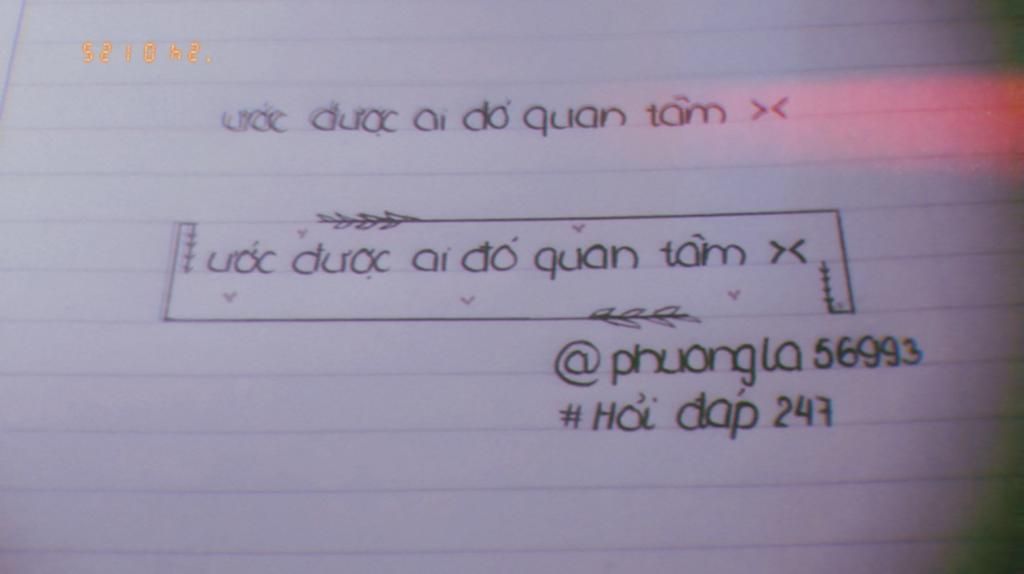 521042.
ước được ai đó quan tâm ><
ước được ai đó quan tâm ><
@phuongla56993
#Hỏi đáp 247